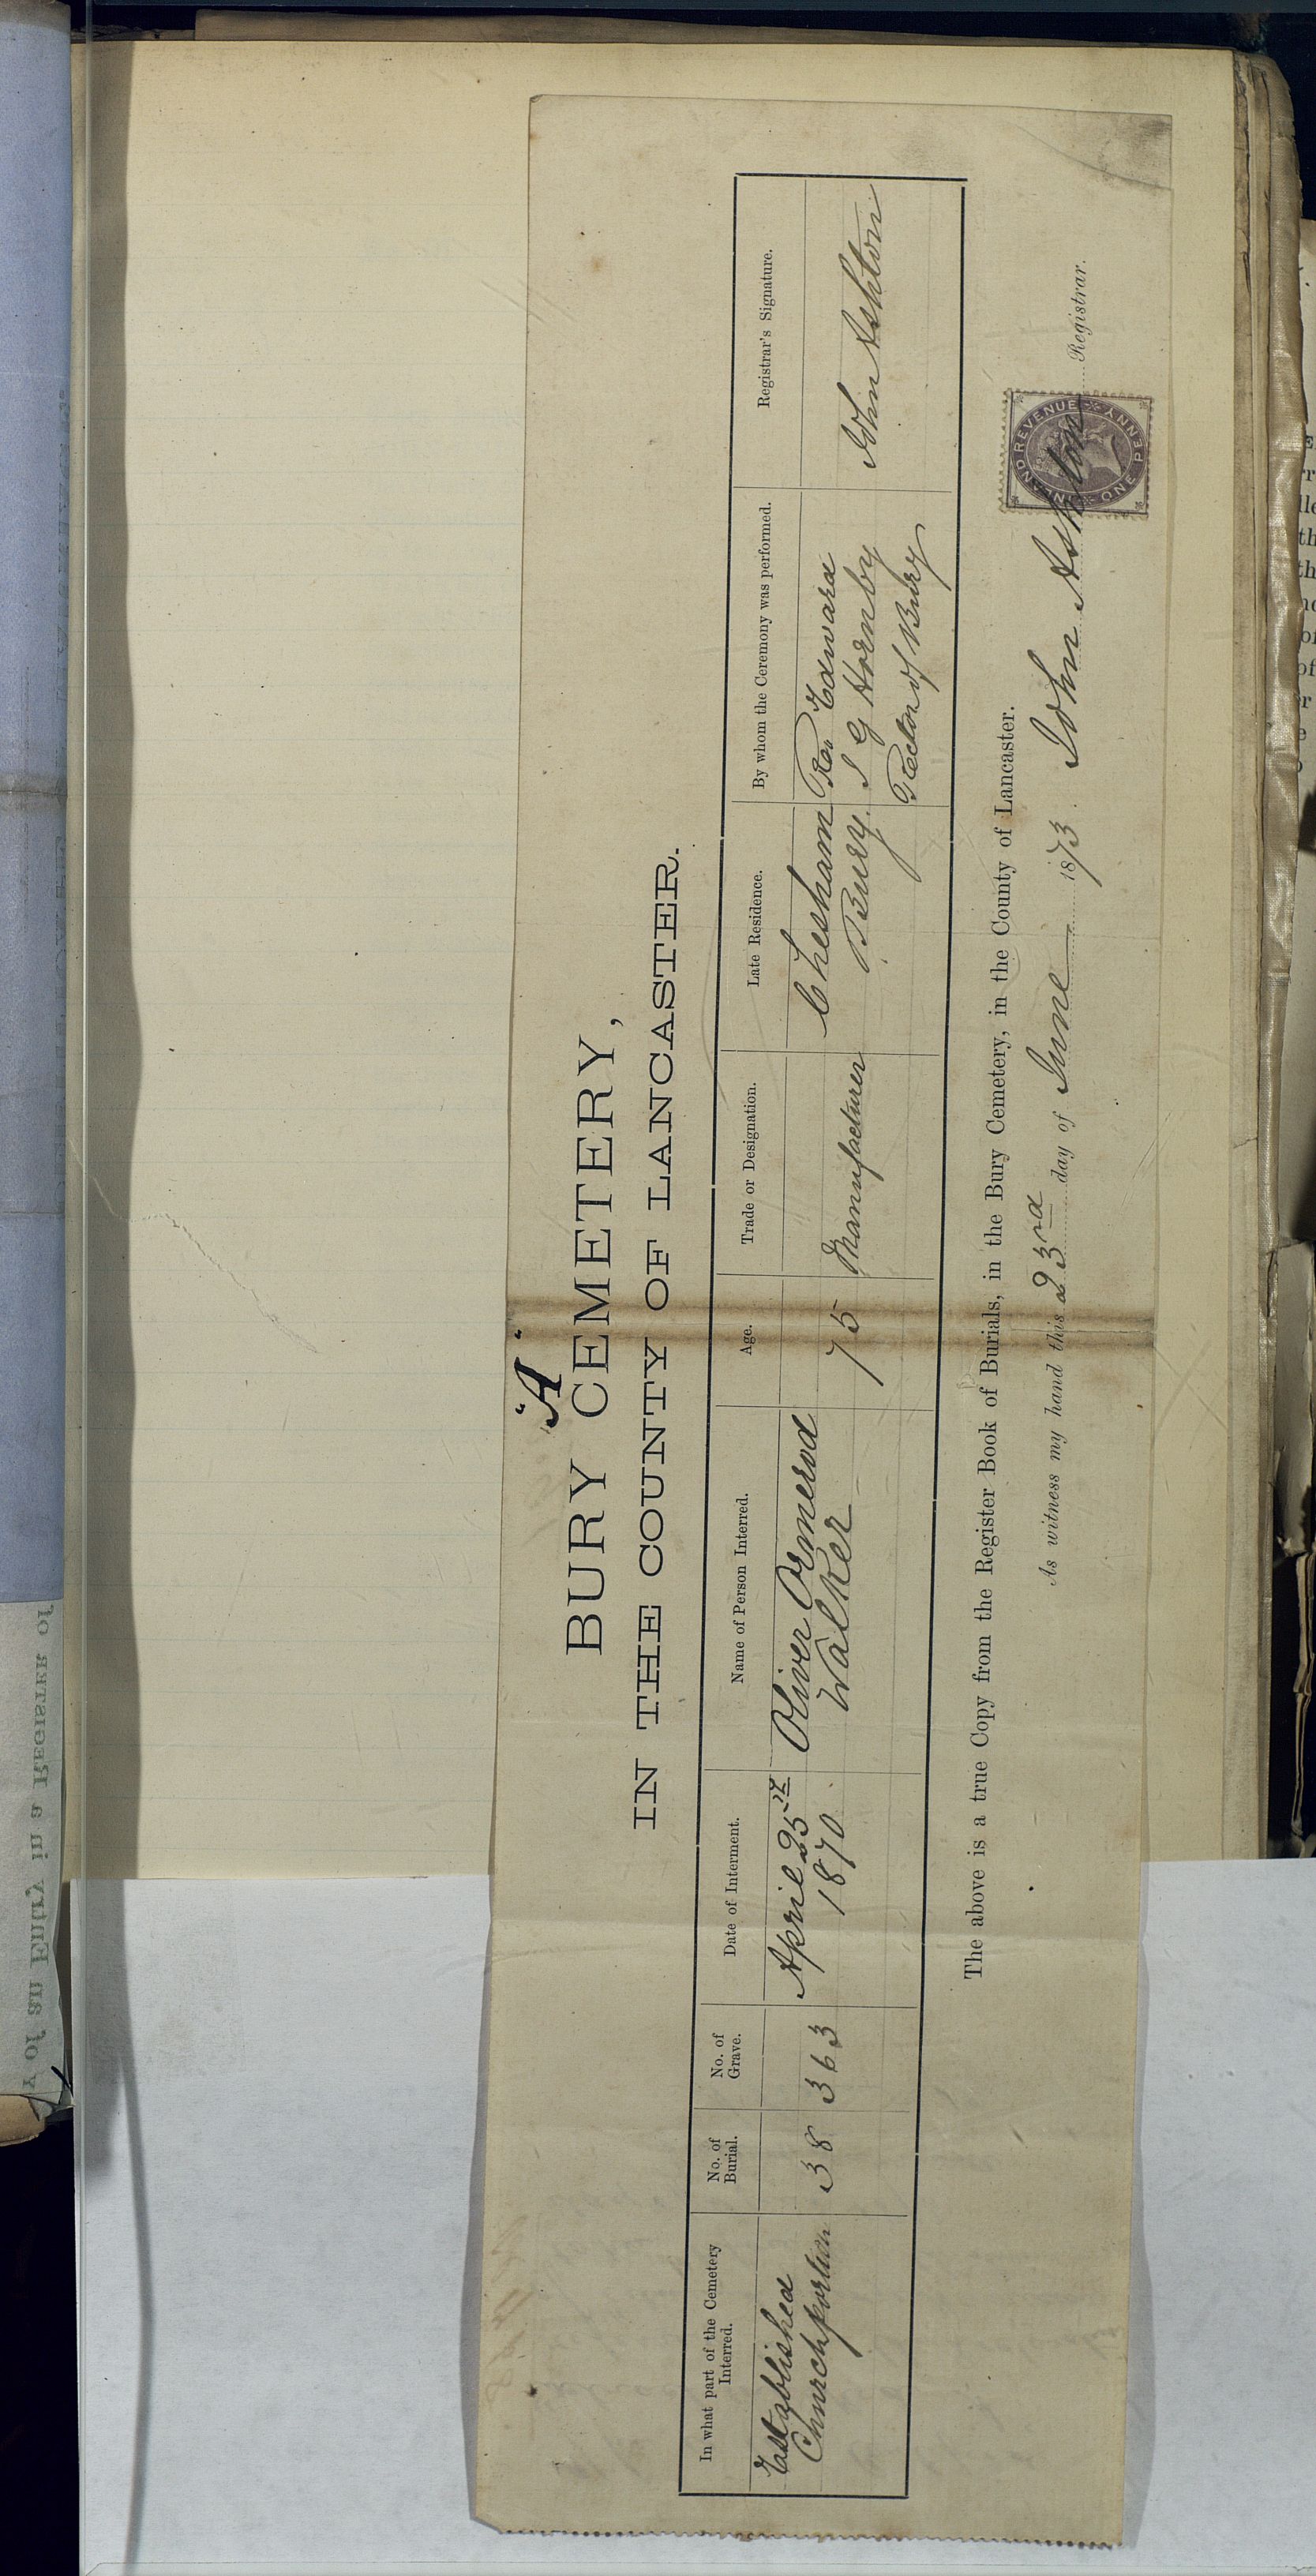 "A"
BURY CEMETERY,
IN THE COUNTY OF LANCASTER.
In what part of the Cemetery Interred.
No. of Burial.
No. of Grave.
Date of Interment.
Name of Person Interred.
Age.
Trade or Designation.
Late Residence.
By whom the Ceremony was performed.
Registrar's Signature.
Established
Church portion
38
363
April 25th
1870
Oliver Ormerod
Walker
75
Manufacturer
Chesham
Bury.
Rev Edward
J G Hornby
Rector of Bury
John Ashton
The above is a true Copy from the Register Book of Burials, in the Bury Cemetery, in the County of Lancaster.
As witness my hand this 23rd day of June 1873. John Ashton Registrar.
INLAND REVENUE ONE PENNY
y of an Entry in a REGISTER of